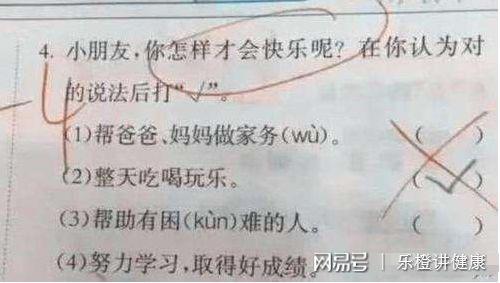 4. 小朋友,你怎样才会快乐呢?在你认为对
的说法后打“√”。
-4
(1)帮爸爸、妈妈做家务(wù)。 ( )
(2)整天吃喝玩乐。 (√)
(3)帮助有困(kùn)难的人。 ( )
(4)努力学习,取得好成绩。
网易号 | 乐橙讲健康